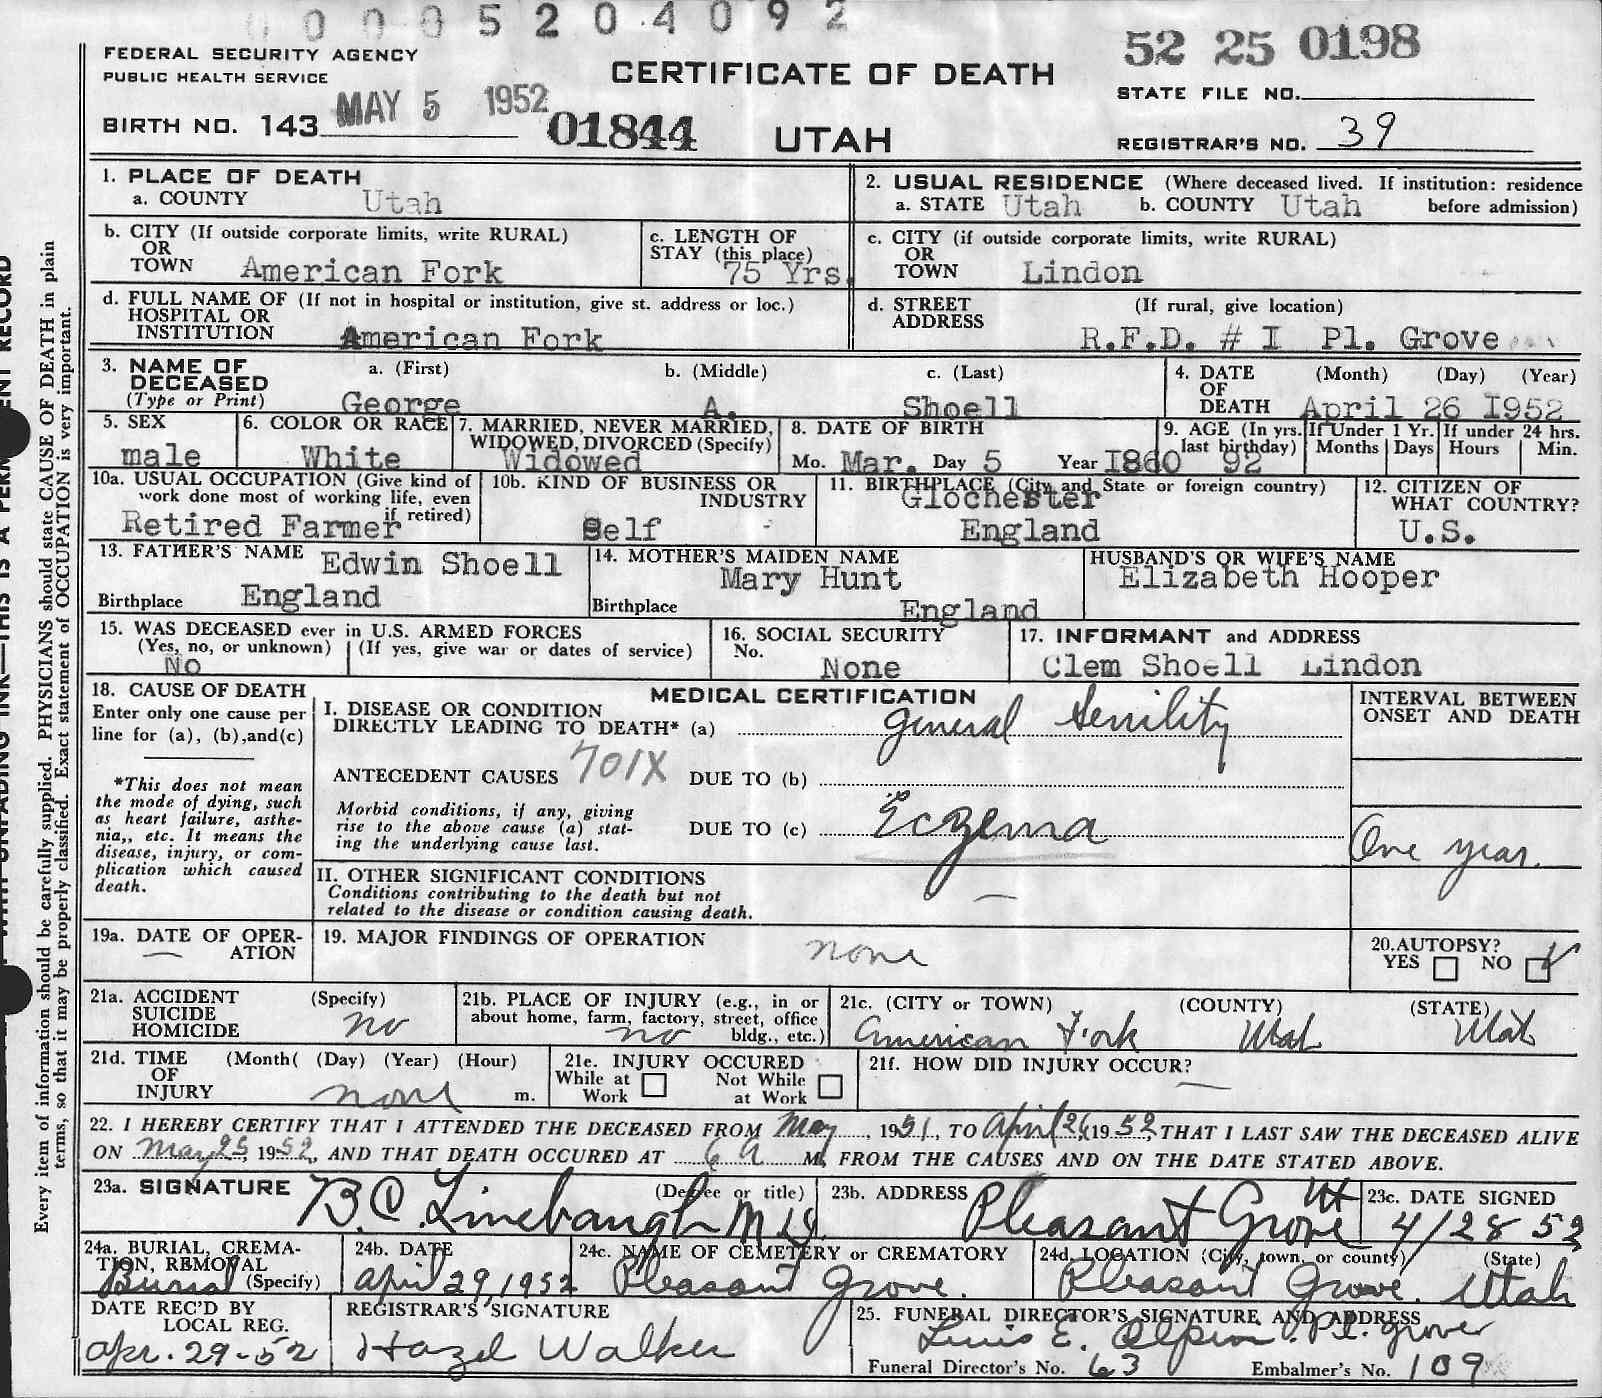 0 0 0 5 2 0 4 0 9 2
FEDERAL SECURITY AGENCY
PUBLIC HEALTH SERVICE
CERTIFICATE OF DEATH
52 25 0198
STATE FILE NO.
BIRTH NO. 143 MAY 5 1952 01844 UTAH
REGISTRAR'S NO. 39
1. PLACE OF DEATH
a. COUNTY Utah
2. USUAL RESIDENCE (Where deceased lived. If institution: residence before admission)
a. STATE Utah b. COUNTY Utah
b. CITY (If outside corporate limits, write RURAL)
OR
TOWN American Fork
c. LENGTH OF
STAY (this place)
75 Yrs.
c. CITY (if outside corporate limits, write RURAL)
OR
TOWN Lindon
d. FULL NAME OF (If not in hospital or institution, give st. address or loc.)
HOSPITAL OR
INSTITUTION American Fork
d. STREET (If rural, give location)
ADDRESS R.F.D. # I Pl. Grove
3. NAME OF
DECEASED
(Type or Print)
a. (First) b. (Middle) c. (Last)
George A. Shoell
4. DATE (Month) (Day) (Year)
OF
DEATH April 26 I952
5. SEX
male
6. COLOR OR RACE
White
7. MARRIED, NEVER MARRIED,
WIDOWED, DIVORCED (Specify)
Widowed
8. DATE OF BIRTH
Mo. Mar. Day 5 Year I860
9. AGE (In yrs.
last birthday)
92
If Under 1 Yr.
Months Days
If under 24 hrs.
Hours Min.
10a. USUAL OCCUPATION (Give kind of
work done most of working life, even
if retired)
Retired Farmer
10b. KIND OF BUSINESS OR
INDUSTRY
Self -
11. BIRTHPLACE (City and State or foreign country)
Glochester
England
12. CITIZEN OF
WHAT COUNTRY?
U.S.
13. FATHER'S NAME Edwin Shoell
Birthplace England
14. MOTHER'S MAIDEN NAME
Mary Hunt
Birthplace England
HUSBAND'S OR WIFE'S NAME
Elizabeth Hooper
15. WAS DECEASED ever in U.S. ARMED FORCES
(Yes, no, or unknown) (If yes, give war or dates of service)
No
16. SOCIAL SECURITY
No.
None
17. INFORMANT and ADDRESS
Clem Shoell Lindon
18. CAUSE OF DEATH
Enter only one cause per
line for (a), (b),and(c)
*This does not mean
the mode of dying, such
as heart failure, asthe-
nia,, etc. It means the
disease, injury, or com-
plication which caused
death.
MEDICAL CERTIFICATION
I. DISEASE OR CONDITION
DIRECTLY LEADING TO DEATH* (a) general Senility
ANTECEDENT CAUSES 701X DUE TO (b)
Morbid conditions, if any, giving
rise to the above cause (a) stat-
ing the underlying cause last.
DUE TO (c) Eczema
INTERVAL BETWEEN
ONSET AND DEATH
One year.
II. OTHER SIGNIFICANT CONDITIONS
Conditions contributing to the death but not
related to the disease or condition causing death.
—
19a. DATE OF OPER-
ATION
—
19. MAJOR FINDINGS OF OPERATION none
20.AUTOPSY?
YES NO ✓
21a. ACCIDENT (Specify)
SUICIDE
HOMICIDE no
21b. PLACE OF INJURY (e.g., in or
about home, farm, factory, street, office
bldg., etc.)
no
21c. (CITY or TOWN) (COUNTY) (STATE)
American Fork Utah Utah
21d. TIME (Month( (Day) (Year) (Hour)
OF
INJURY none m.
21e. INJURY OCCURED
While at
Work
Not While
at Work
21f. HOW DID INJURY OCCUR?
—
22. I HEREBY CERTIFY THAT I ATTENDED THE DECEASED FROM May, 1951, TO April 26, 1952, THAT I LAST SAW THE DECEASED ALIVE
ON May 25, 1952, AND THAT DEATH OCCURED AT 6 A M, FROM THE CAUSES AND ON THE DATE STATED ABOVE.
23a. SIGNATURE (Degree or title)
B.C. Linebaugh M.D.
23b. ADDRESS Pleasant Grove Ut
23c. DATE SIGNED
4/28 52
24a. BURIAL, CREMA-
TION, REMOVAL
(Specify)
Burial
24b. DATE
April 29, 1952
24c. NAME OF CEMETERY or CREMATORY
Pleasant Grove.
24d. LOCATION (City, town, or county) (State)
Pleasant Grove. Utah
DATE REC'D BY
LOCAL REG.
Apr. 29-52
REGISTRAR'S SIGNATURE
Hazel Walker
25. FUNERAL DIRECTOR'S SIGNATURE AND ADDRESS
E. Pl. Grove
Funeral Director's No. 63 Embalmer's No. 109
Every item of information should be carefully supplied. PHYSICIANS should state CAUSE OF DEATH in plain
terms, so that it may be properly classified. Exact statement of OCCUPATION is very important.
UNFADING INK—THIS IS A PERMANENT RECORD